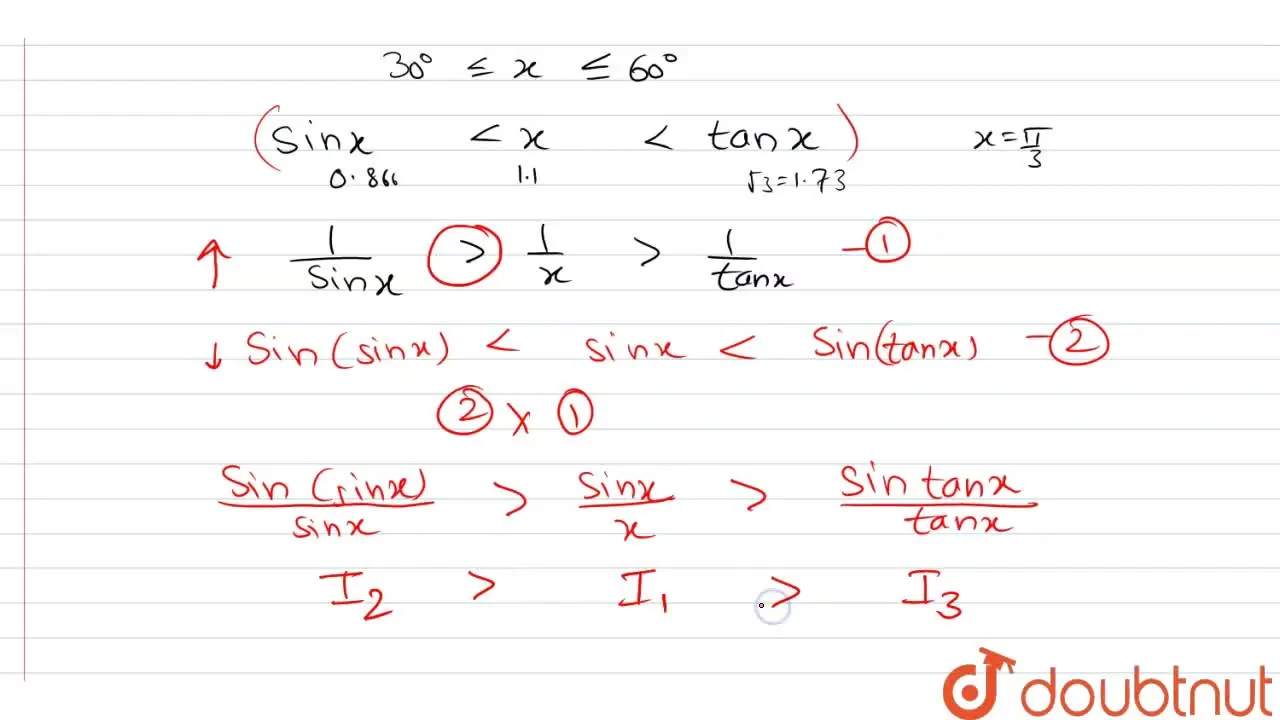 30° ≤ x ≤ 60°
(Sinx < x < tanx) x = π/3
0.866 1.1 √3 = 1.73
↑ 1/Sinx > 1/x > 1/tanx - ①
↓ Sin(sinx) < sinx < Sin(tanx) - ②
② x ①
Sin(sinx)/sinx > Sinx/x > Sin tanx/tanx
I₂ > I₁ > I₃
doubtnut